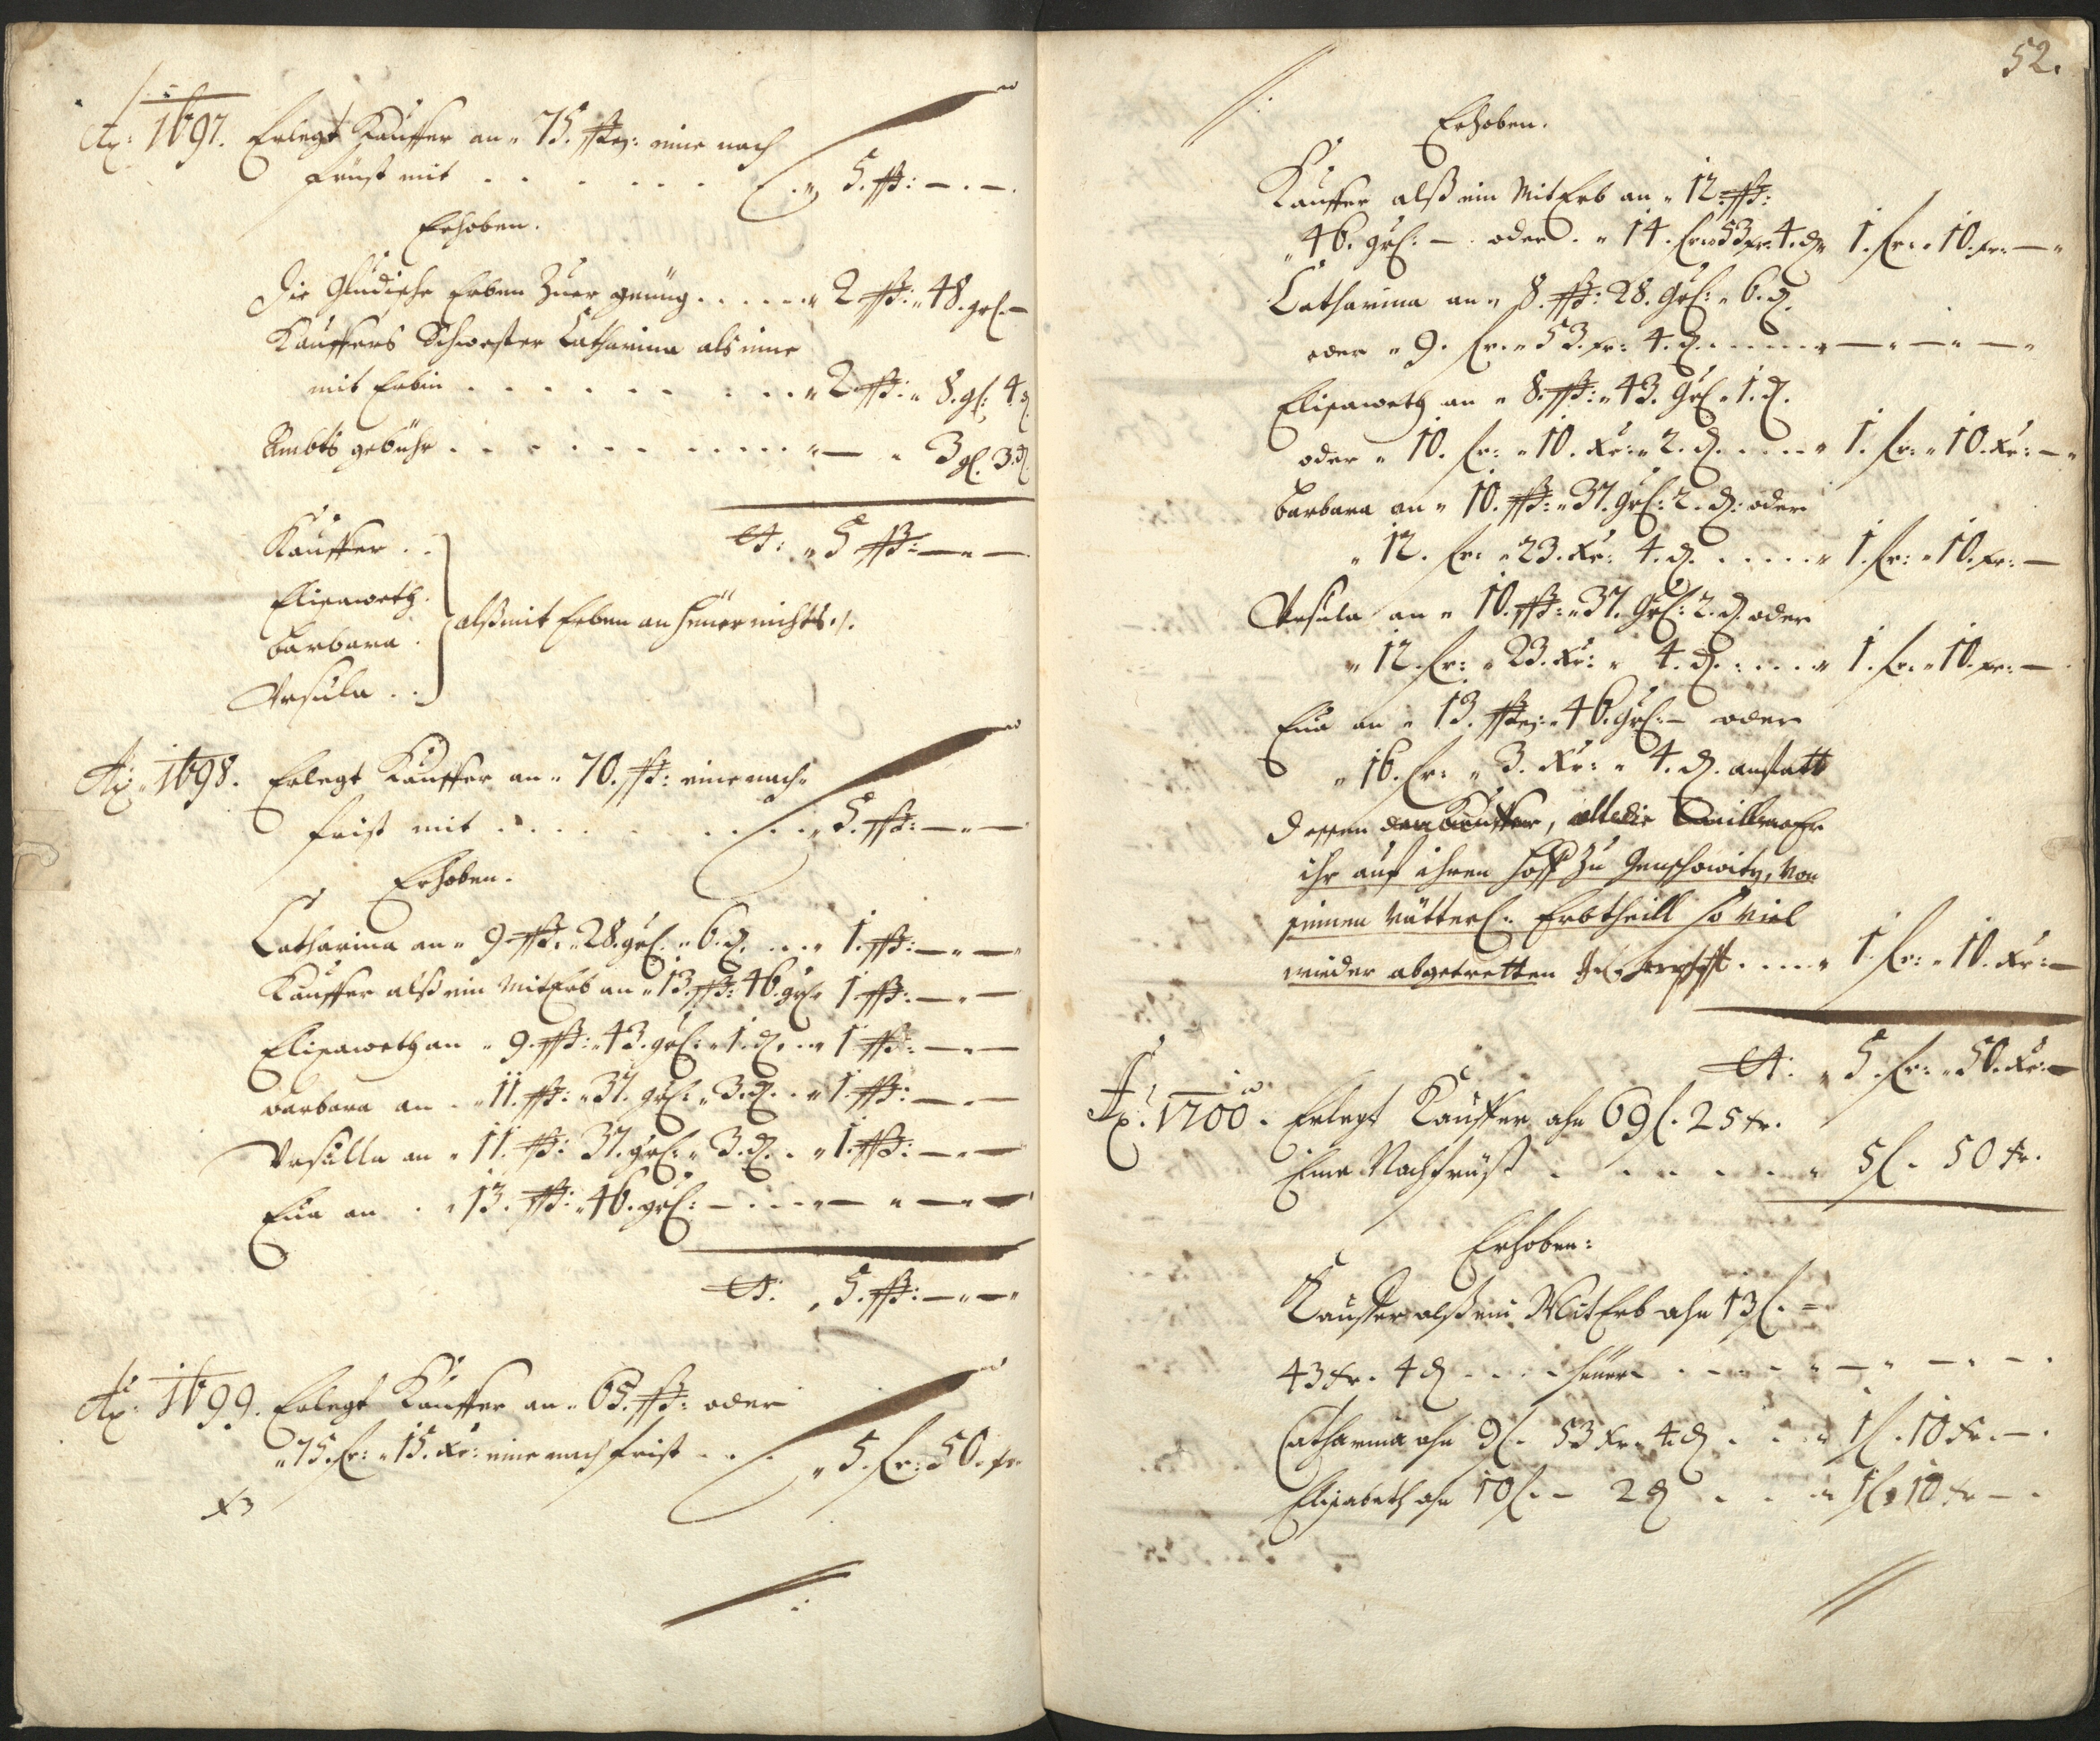 Ao: 1697. Erlegt Kauffer an " 75. ßß: eine nach
früst mit . . . . . . " 5. ßß: — . — .
Erhoben.
die Erben Zuer gnüng . . . . . " 2 ßß: " 48. grl. —
Kauffers Schwester Catharina als eine
mit Erbin . . . . . . . . . " 2 ßß: " 8. gl: 4. d
Ambts gebühr . . . . . . . . . . . " — " 3 gl. 3. d
Kauffer . .
Elisaweth .
Barbara .
Vrsula . .
alß mit Erben an heüer nichts ./.
St: " 5 ßß: — " —
Ao: 1698. Erlegt Kauffer an " 70. ßß: eine nach
frist mit . . . . . . . . . " 5. ßß: — " —
Erhoben.
Catharina an " 9 ßß. " 28. grl. " 6. d. . . . " 1. ßß: — " —
Kauffer alß ein MitErb an " 13. ßß: 46. grl " 1 ßß: — " —
Elisaweth an " 9. ßß: " 43. grl: " 1. d. . . " 1 ßß: — " —
Barbara an . " 11. ßß: " 37. grl: " 3. d. . . " 1. ßß: — " —
Vrsulla an " 11. ßß: 37. grl: " 3. d. . . " 1. ßß: — " —
Eua an . . " 13. ßß: " 46. grl: — . . . " — " — " —
St: " 5. ßß: — " — "
Ao: 1699. Erlegt Kauffer an " 65. ßß: oder
" 75. fr: " 15. Xr: eine nach frist . . . " 5. fr: 50. Xr
52.
Erhoben.
Kauffer alß ein MitErb an " 12. ßß:
" 46. grl: — . oder . " 14. fr: " 53 Xr. 4. d " 1. fr: " 10. Xr: — "
Catharina an " 8. ßß: 28. grl: " 6. d.
oder " 9. fr. " 53. Xr: 4. d. . . . . . " — " — " — "
Elisaweth an " 8. ßß: " 43. grl " 1. d.
oder " 10. fr: " 10. Xr: " 2. d. . . . . " 1. fr: " 10. Xr: — "
Barbara an " 10. ßß: " 37. grl: 2. d: oder
" 12. fr: " 23. Xr: 4. d. . . . . . " 1. fr: " 10. Xr: —
Vrsula an " 10. ßß: " 37. grl: 2. d. oder
" 12. fr: " 23. Xr: " 4. d. . . . . " 1. fr: " 10. Xr: —
Eua an " 13. ßß: " 46. grl: — oder
" 16. fr: " 3. Xr: " 4. d. anstatt
dessen der Kauffer, alledie
ihr auf ihren hoff zu , von
seinen vätterl: Erbtheill so viel
wieder abgetretten . . . . " 1. fr: " 10. Xr: —
St: " 5. fr: " 50. Xr: —
Ao: 1700. Erlegt Kauffer ahn 69 f. 25 Xr.
Eine Nachfrüst . . . . . . " 5 f. 50 Xr.
Erhoben:
Kauffer alß ein MitErb ahn 13 f. =
43 Xr. 4 d . . . heüer . . . . " — " — . — .
Catharina ahn 9 f. 53 Xr. 4 d . . . " 1 f. 10 Xr. — .
Elisabeth ahn 10 f. — 2 d . . . " 1 f. 10 Xr — .